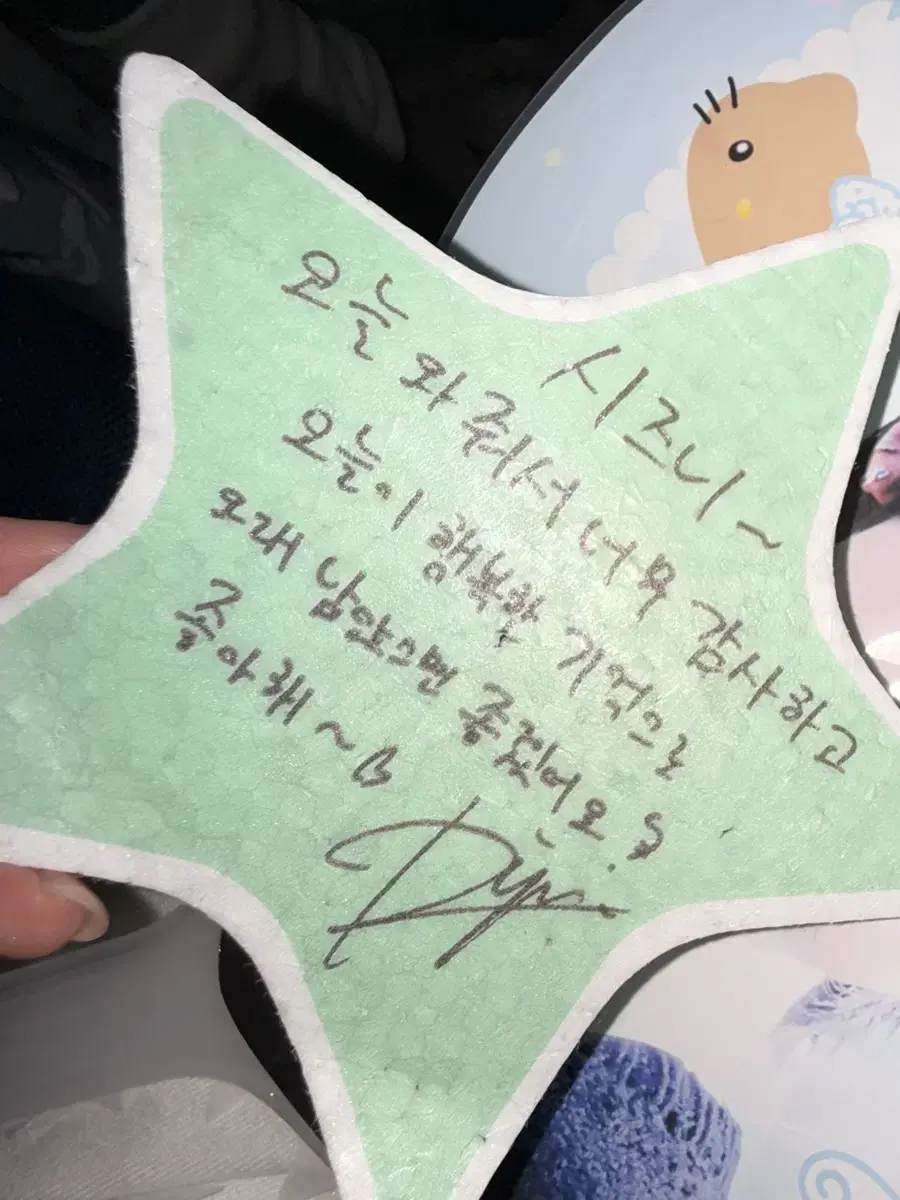 시즈니~
오늘 와 줘서 너무 감사하고
오늘이 행복한 기억으로
오래 남았으면 좋겠어요.
좋아해~♡